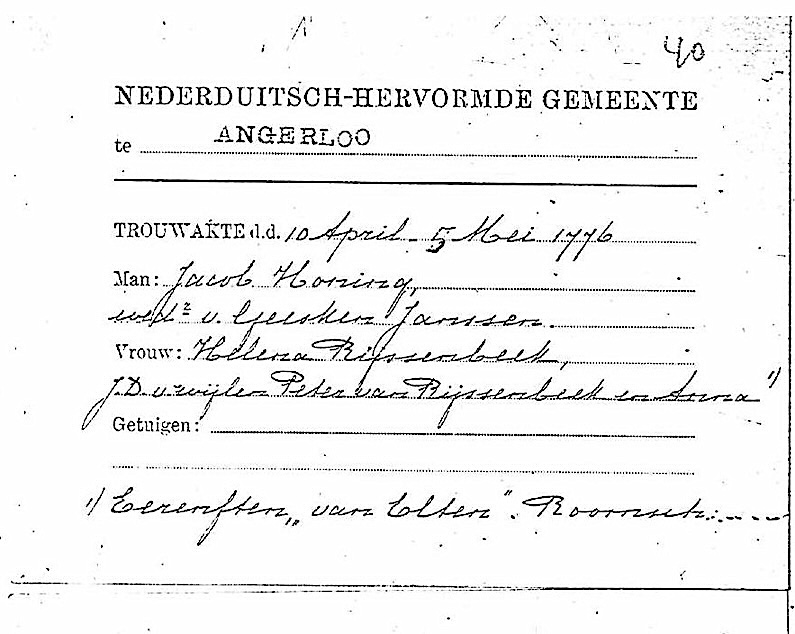 40
NEDERDUITSCH-HERVORMDE GEMEENTE
te ANGERLOO
TROUWAKTE d.d. 10 April - 5 Mei 1776
Man: Jacob Honing,
wedr v. Geesken Janssen.
Vrouw: Helena Rijssenbeek,
J.D. v. wijlen Peter van Rijssenbeek en Anna 1)
Getuigen:
1) Eerenften „van Elten". Roomsch.